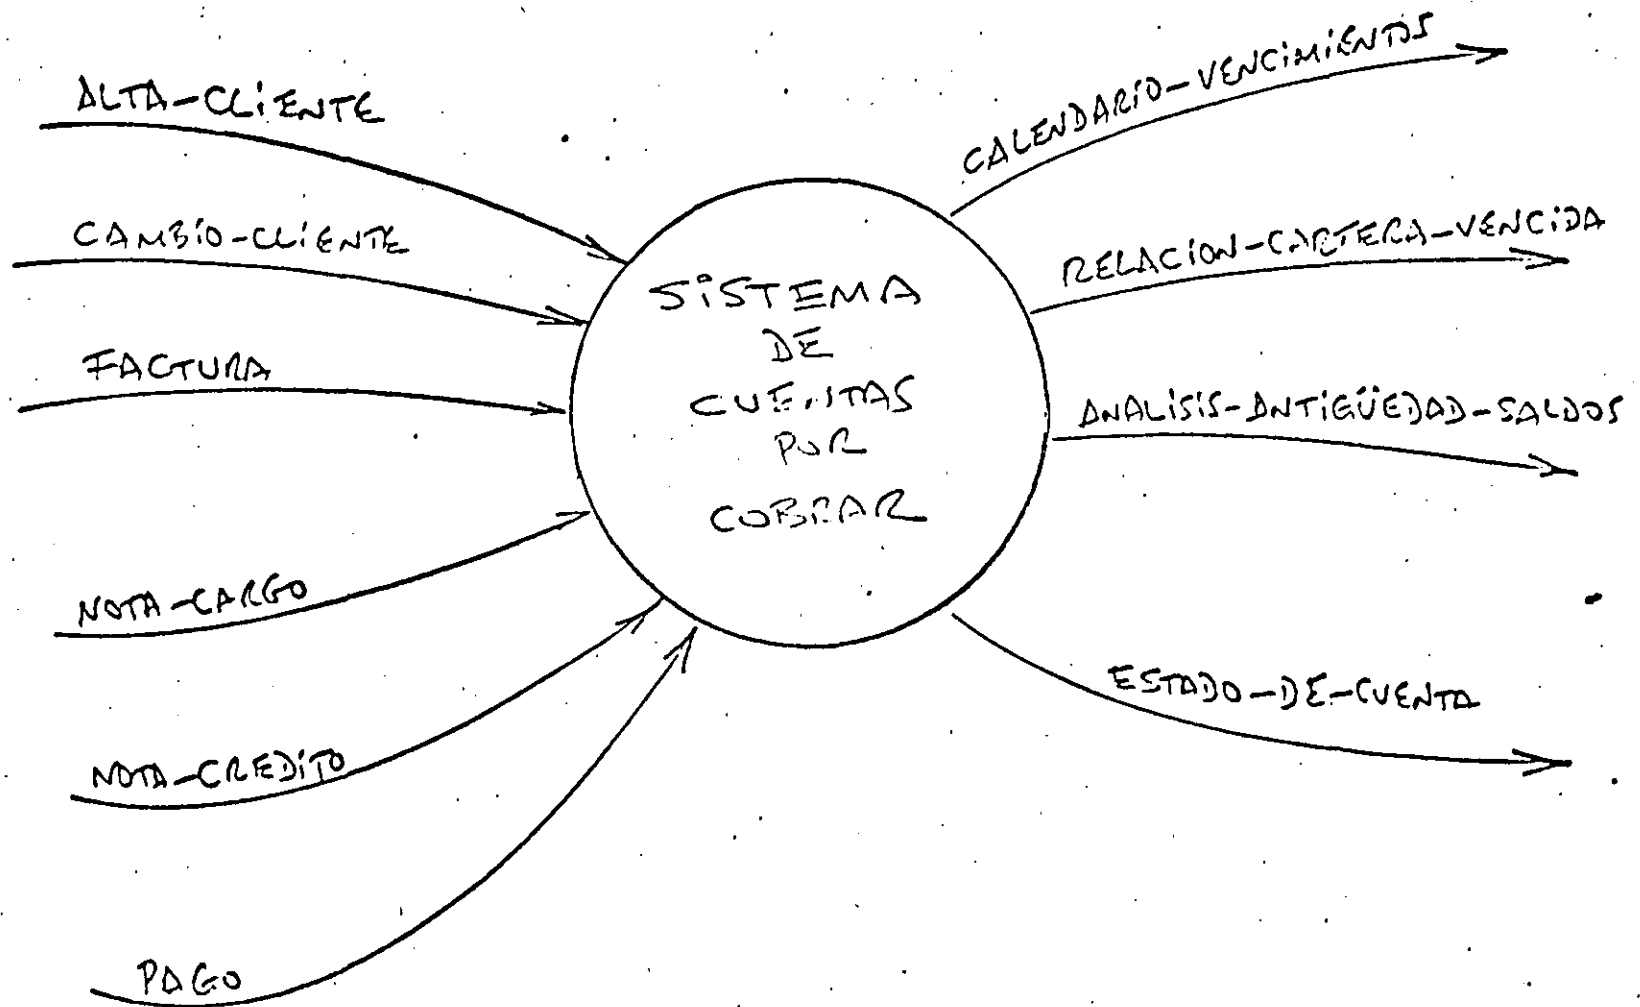 ALTA-CLIENTE
CAMBIO-CLIENTE
FACTURA
NOTA-CARGO
NOTA-CREDITO
PAGO
SISTEMA
DE
CUENTAS
POR
COBRAR
CALENDARIO-VENCIMIENTOS
RELACION-CARTERA-VENCIDA
ANALISIS-ANTIGÜEDAD-SALDOS
ESTADO-DE-CUENTA